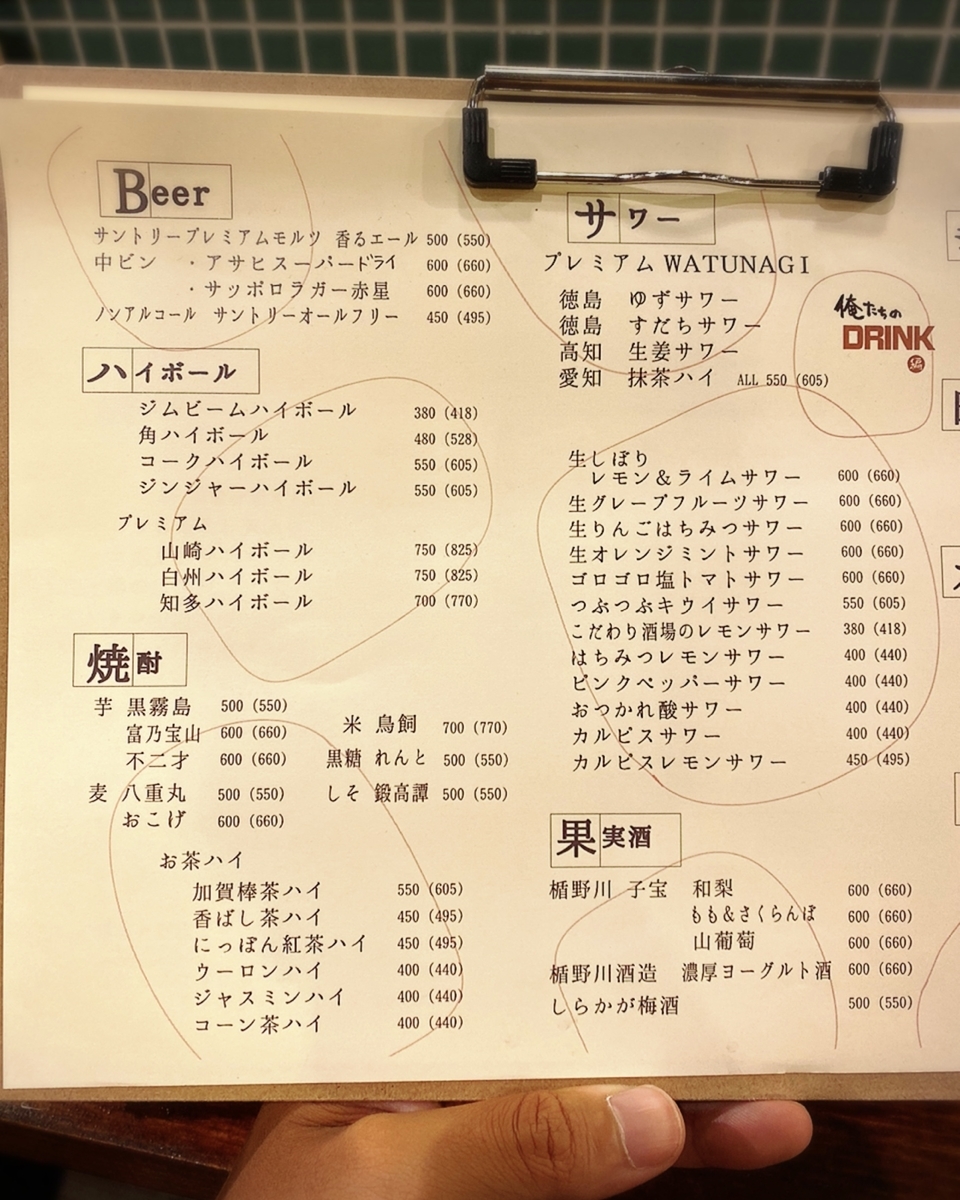 Beer
サントリープレミアムモルツ 香るエール 500 (550)
中ビン ・アサヒスーパードライ 600 (660)
・サッポロラガー赤星 600 (660)
ノンアルコール サントリーオールフリー 450 (495)
ハイボール
ジムビームハイボール 380 (418)
角ハイボール 480 (528)
コークハイボール 550 (605)
ジンジャーハイボール 550 (605)
プレミアム
山崎ハイボール 750 (825)
白州ハイボール 750 (825)
知多ハイボール 700 (770)
焼酎
芋 黒霧島 500 (550)
富乃宝山 600 (660)
不二才 600 (660)
麦 八重丸 500 (550)
おこげ 600 (660)
米 鳥飼 700 (770)
黒糖 れんと 500 (550)
しそ 鍛高譚 500 (550)
お茶ハイ
加賀棒茶ハイ 550 (605)
香ばし茶ハイ 450 (495)
にっぽん紅茶ハイ 450 (495)
ウーロンハイ 400 (440)
ジャスミンハイ 400 (440)
コーン茶ハイ 400 (440)
サワー
プレミアム WATUNAGI
徳島 ゆずサワー
徳島 すだちサワー
高知 生姜サワー
愛知 抹茶ハイ ALL 550 (605)
生しぼり
レモン＆ライムサワー 600 (660)
生グレープフルーツサワー 600 (660)
生りんごはちみつサワー 600 (660)
生オレンジミントサワー 600 (660)
ゴロゴロ塩トマトサワー 600 (660)
つぶつぶキウイサワー 550 (605)
こだわり酒場のレモンサワー 380 (418)
はちみつレモンサワー 400 (440)
ピンクペッパーサワー 400 (440)
おつかれ酸サワー 400 (440)
カルピスサワー 400 (440)
カルピスレモンサワー 450 (495)
果実酒
楯野川 子宝 和梨 600 (660)
もも＆さくらんぼ 600 (660)
山葡萄 600 (660)
楯野川酒造 濃厚ヨーグルト酒 600 (660)
しらかが梅酒 500 (550)
俺たちの
DRINK